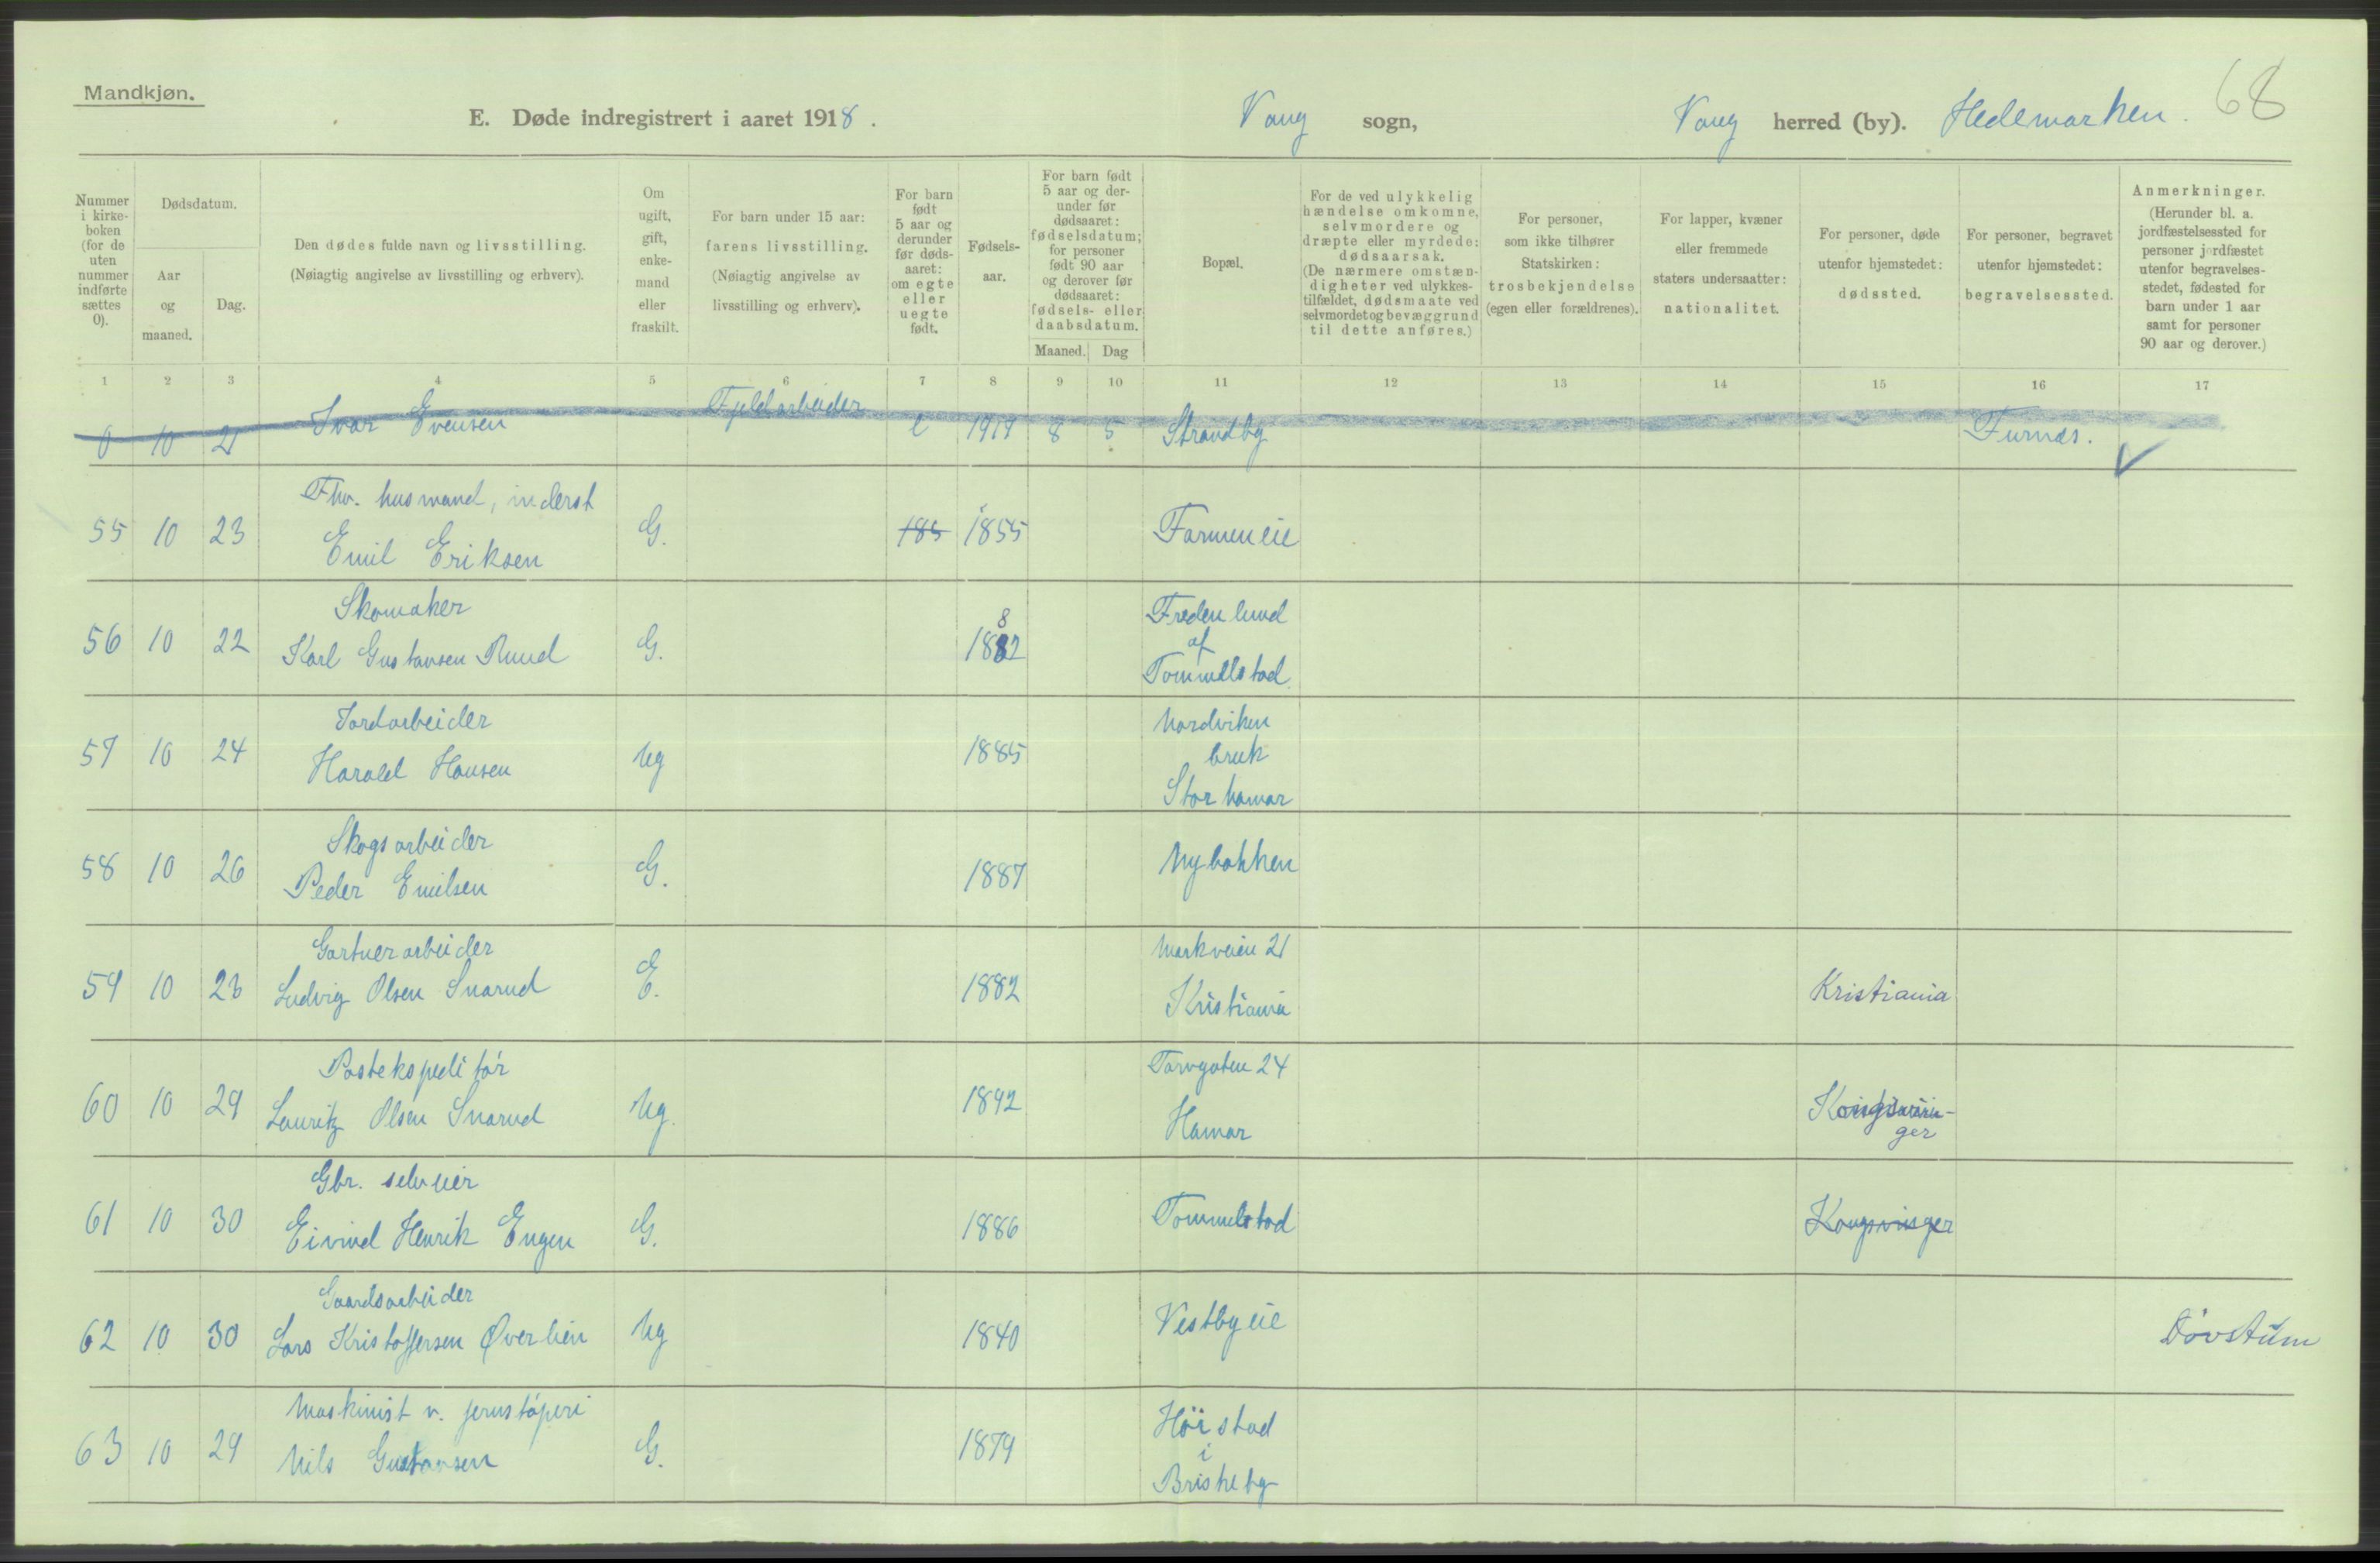 Mandkjøn.
E. Døde indregistrert i aaret 1918.
Vang sogn,
Vang herred (by). Hedemarken.
68
Nummer i kirke-boken (for de uten nummer indførte sættes 0).
Dødsdatum.
Aar og maaned.
Dag.
Den dødes fulde navn og livsstilling. (Nøiagtig angivelse av livsstilling og erhverv).
Om ugift, gift, enke-mand eller fraskilt.
For barn under 15 aar: farens livsstilling. (Nøiagtig angivelse av livsstilling og erhverv).
For barn født 5 aar og derunder før døds-aaret: om egte eller uegte født.
Fødsels-aar.
For barn født 5 aar og der-under før dødsaaret: fødselsdatum; for personer født 90 aar og derover før dødsaaret: fødsels- eller daabsdatum.
Maaned. Dag
Bopæl.
For de ved ulykkelig hændelse omkomne, selvmordere og dræpte eller myrdede: dødsaarsak. (De nærmere omstæn-digheter ved ulykkes-tilfældet, dødsmaate ved selvmordet og bevæggrund til dette anføres.)
For personer, som ikke tilhører Statskirken: trosbekjendelse (egen eller forældrenes).
For lapper, kvæner eller fremmede staters undersaatter: nationalitet.
For personer, døde utenfor hjemstedet: dødssted.
For personer, begravet utenfor hjemstedet: begravelsessted.
Anmerkninger. (Herunder bl. a. jordfæstelsessted for personer jordfæstet utenfor begravelses-stedet, fødested for barn under 1 aar samt for personer 90 aar og derover.)
1 2 3 4 5 6 7 8 9 10 11 12 13 14 15 16 17
Fjeldarbeider
0 10 21 Ivar Evensen e 1917 8 5 Strandby Furnes.
Fhv. husmand, inderst
55 10 23 Emil Eriksen G. 185 1855 Farmeneie
Skomaker
56 10 22 Karl Gustavsen Ruud G. 1882 8
Fredenlund
af
Tommelstad
Jordarbeider
57 10 24 Harald Hansen Ug 1885
Nordviken
bruk
Storhamar
Skogsarbeider
58 10 26 Peder Emilsen G. 1887 Nybakken
Gartnerarbeider
59 10 23 Ludvig Olsen Snarud E. 1882
Markveien 21
Kristiania
Kristiania
Postekspeditör
60 10 29 Lauritz Olsen Snarud Ug. 1892
Torvgaten 24
Hamar
Kongsvin-
ger
Gbr. selveier
61 10 30 Eivind Henrik Engen G. 1886 Tommelstad Kongsvinger
Gaardsarbeider
62 10 30 Lars Kristoffersen Øverlien Ug 1840 Vestbyeie Døvstum
Maskinist v. jernstöperi
63 10 29 Nils Gustavsen G. 1879
Höistad
i
Briskeby